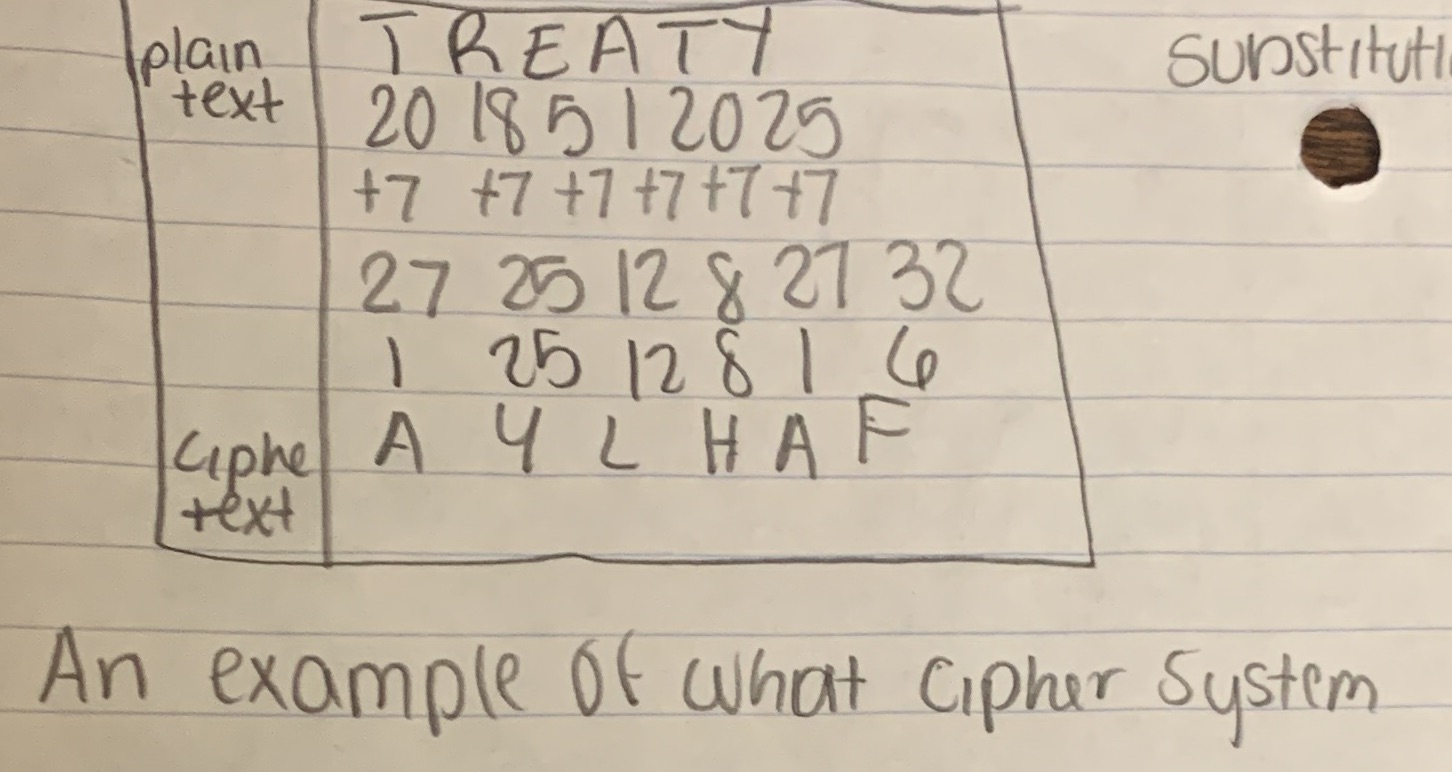 plain
text
T R E A T Y
20 18 5 1 20 25
+7 +7 +7 +7 +7 +7
27 25 12 8 27 32
1 25 12 8 1 6
Ciphe
text
A Y L H A F
substituti
An example of what cipher system